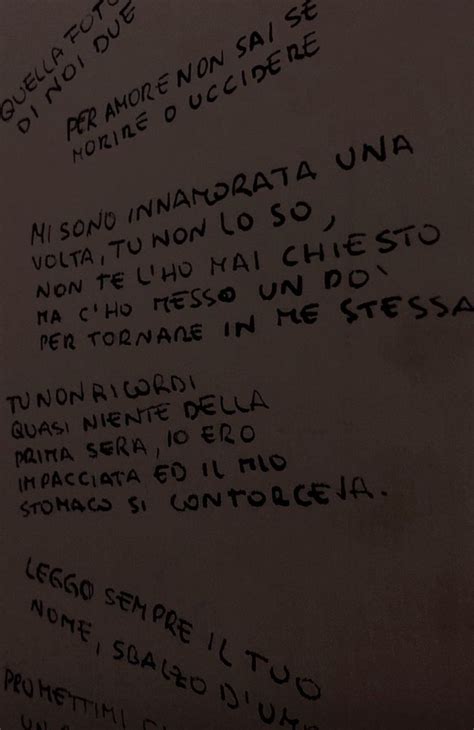 QUELLA FOTO
DI NOI DUE
PER AMORE NON SAI SE
MORIRE O UCCIDERE
MI SONO INNAMORATA UNA
VOLTA, TU NON LO SO,
NON TE L'HO MAI CHIESTO
MA C'HO MESSO UN PO'
PER TORNARE IN ME STESSA
TU NON RICORDI
QUASI NIENTE DELLA
PRIMA SERA, IO ERO
IMPACCIATA ED IL MIO
STOMACO SI CONTORCEVA.
LEGGO SEMPRE IL TUO
NOME, SBALZO D'UMO
PROMETTIMI
UN